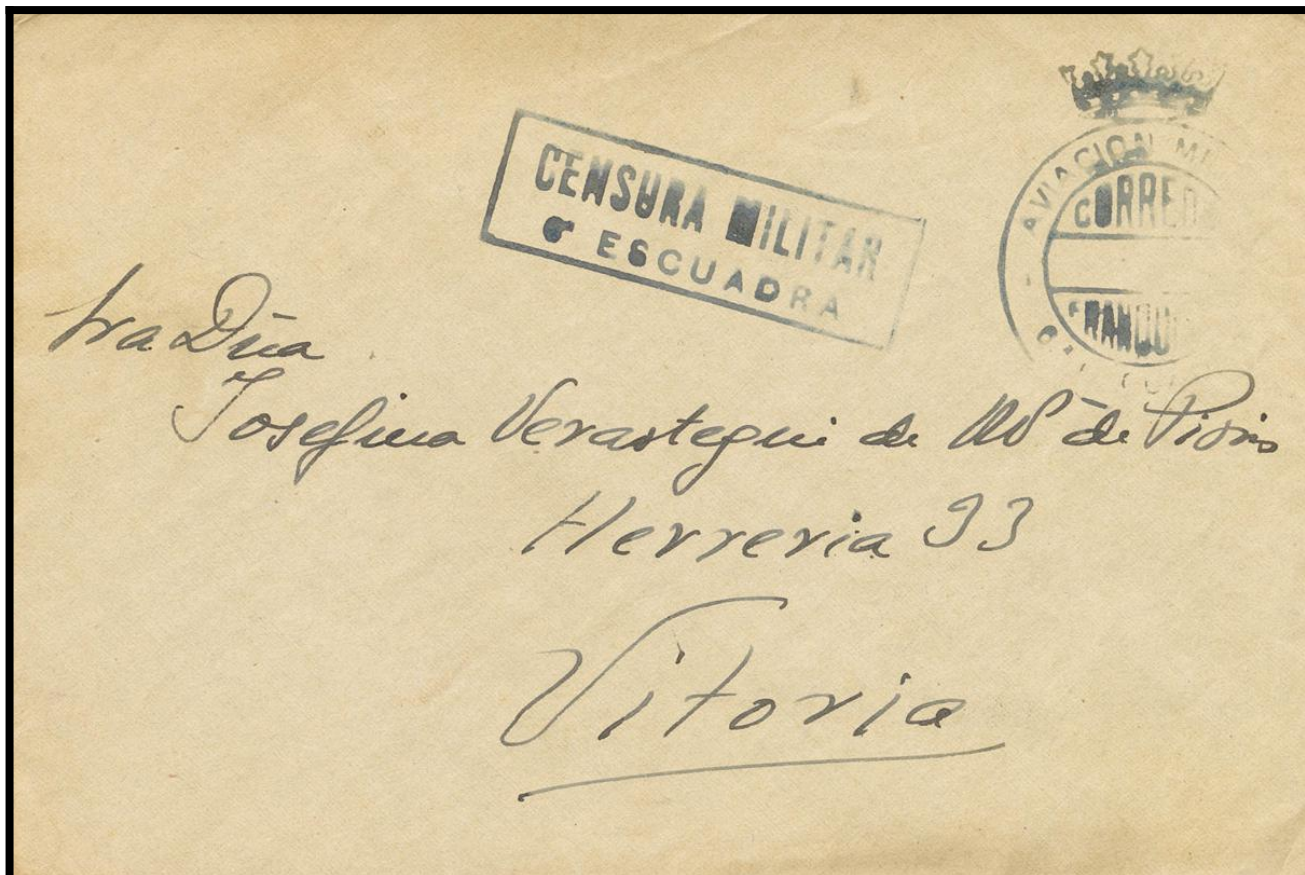 CENSURA MILITAR
ESCUADRA
AVIACION
CORREO
FRANQU
Sra Dña
Josefina Verastegui de
Herreria 93
Vitoria